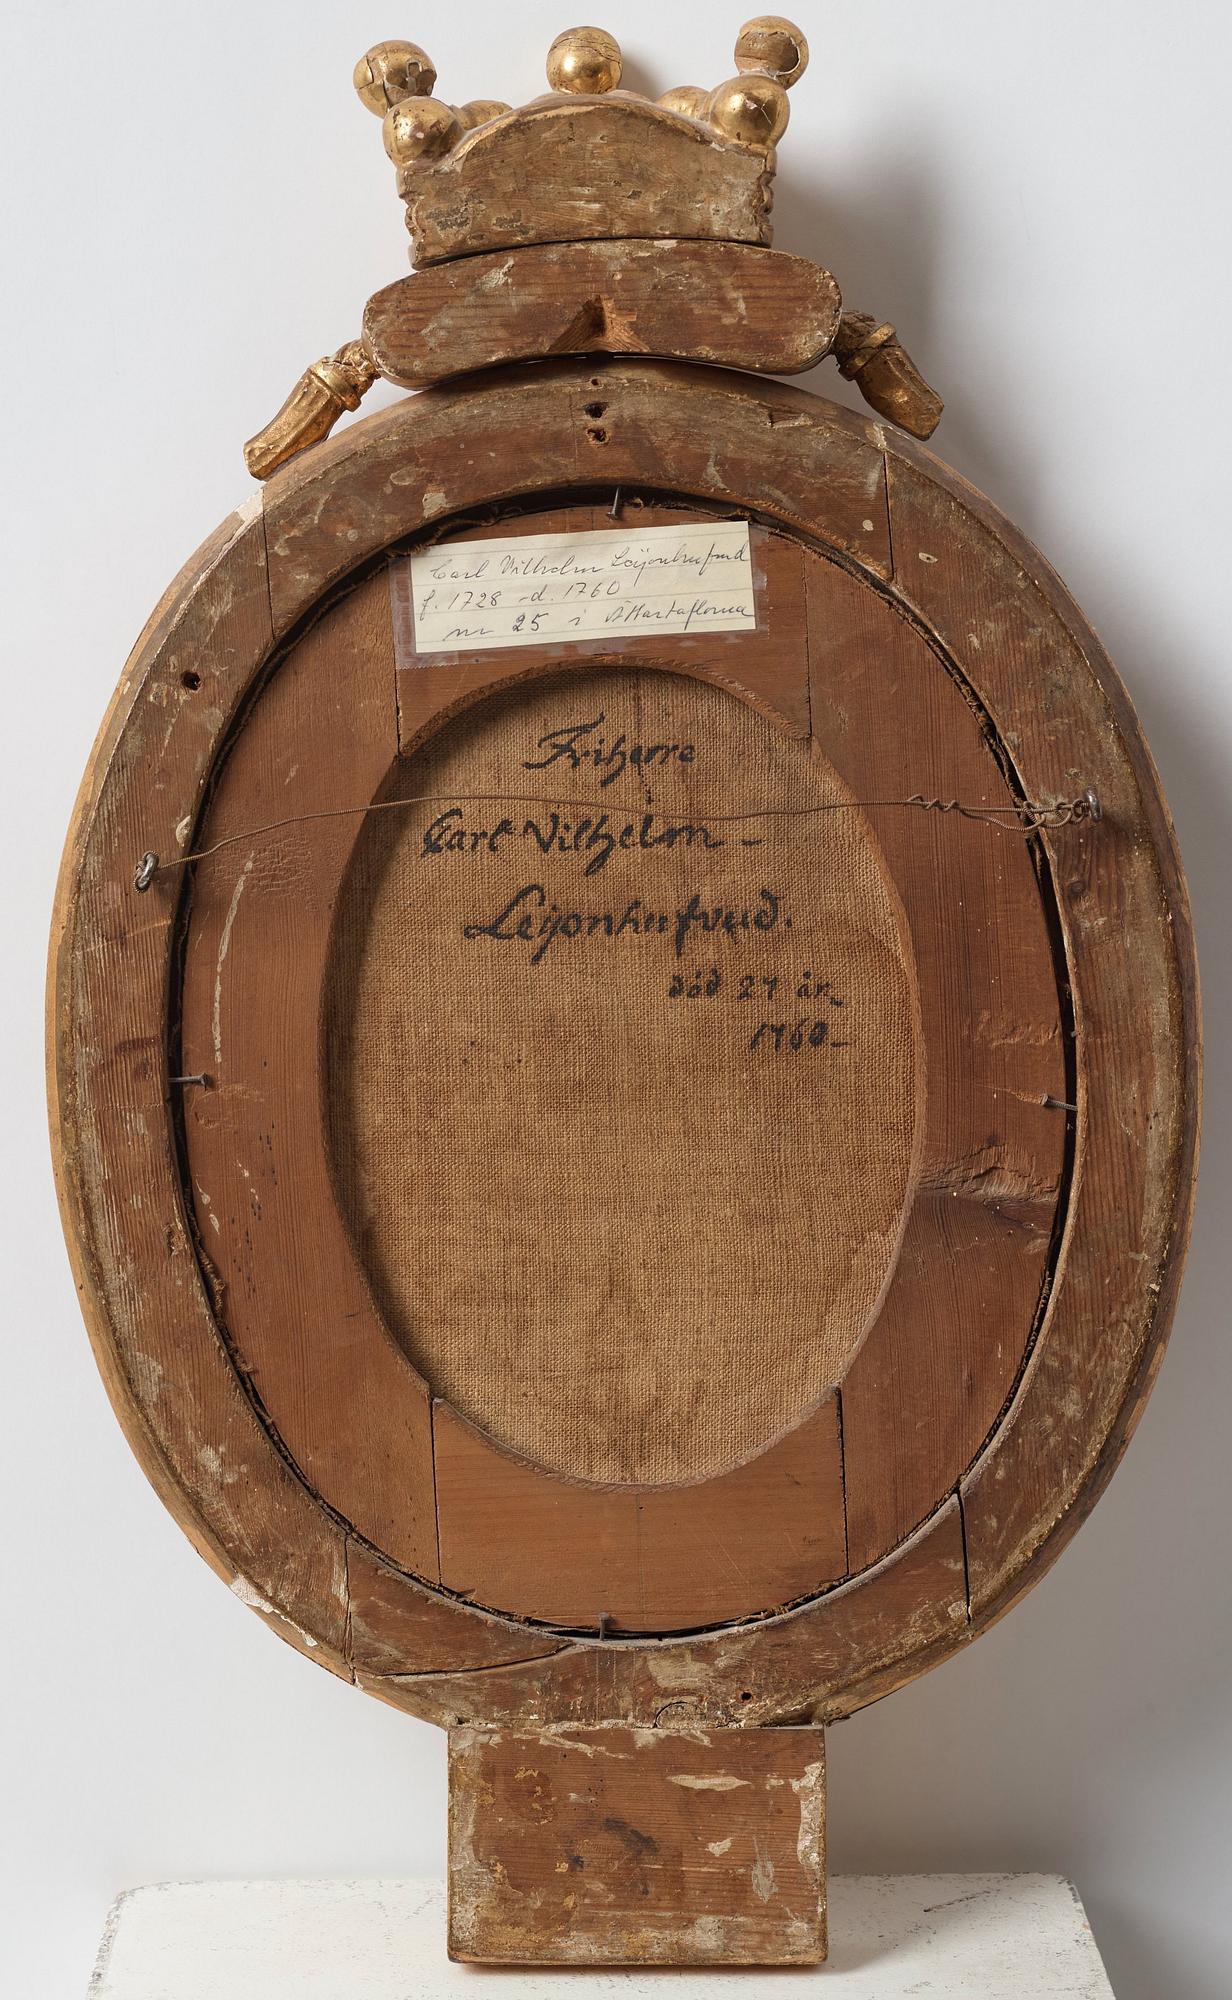 Carl Vilhelm Leijonhufvud
f. 1728 - d. 1760
nr 25 i Ättartaflorna
Friherre
Carl Vilhelm -
Leijonhufvud.
död 27 år
1760-